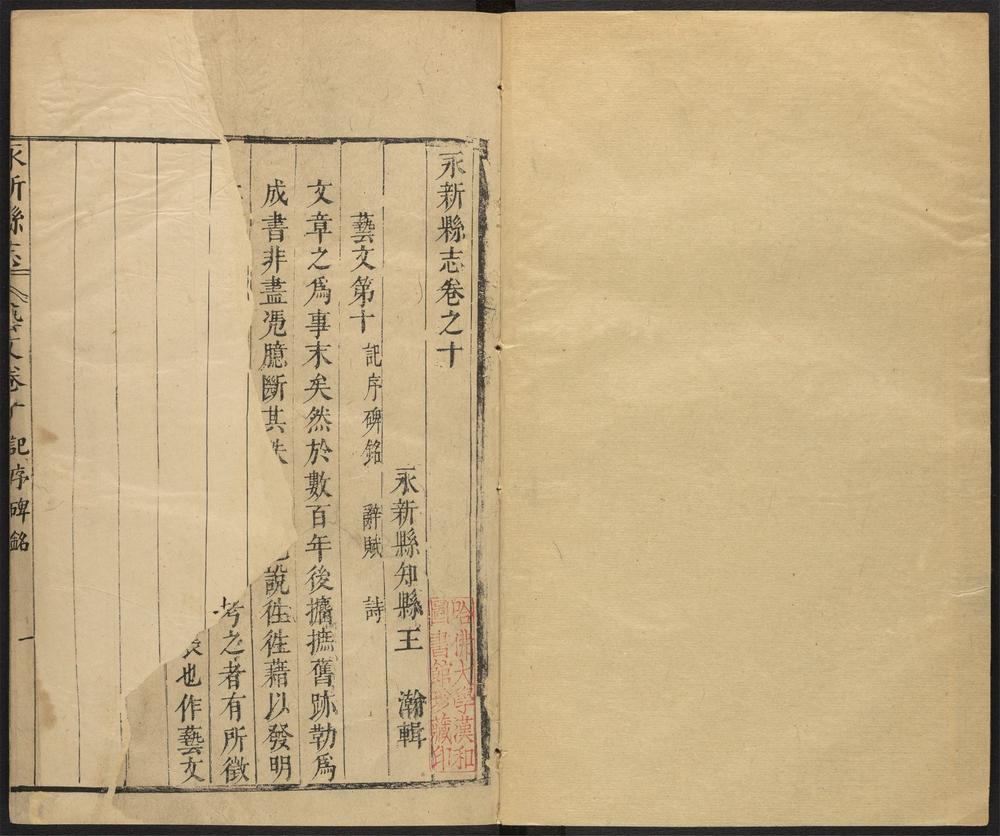 永新縣志卷之十
永新縣知縣王 瀚輯
藝文第十 記序碑銘 辭賦 詩
文章之爲事末矣然於數百年後攟摭舊跡勒爲
成書非盡凴臆斷其 說徃徃藉以發明
考之者有所徵
也作藝文
永新縣志 藝文卷十 記序碑銘 一
哈佛大學漢和
圖書館珍藏印